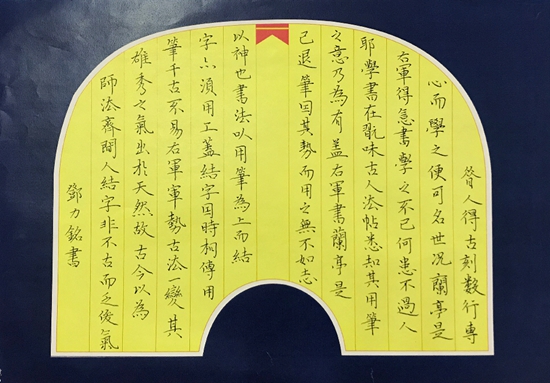 昔人得古刻数行專
心而學之便可名世况蘭亭是
右軍得意書學之不已何患不過人
耶學書在翫味古人法帖悉知其用筆
之意乃為有益右軍書蘭亭是
已退筆因其勢而用之無不如志
以神也書法以用筆為上而結
字亦須用工蓋結字因時相傳用
筆千古不易右軍軍勢古法一變其
雄秀之氣出於天然故古今以為
師法齊間人結字非不古而乏俊氣
鄧力銘書